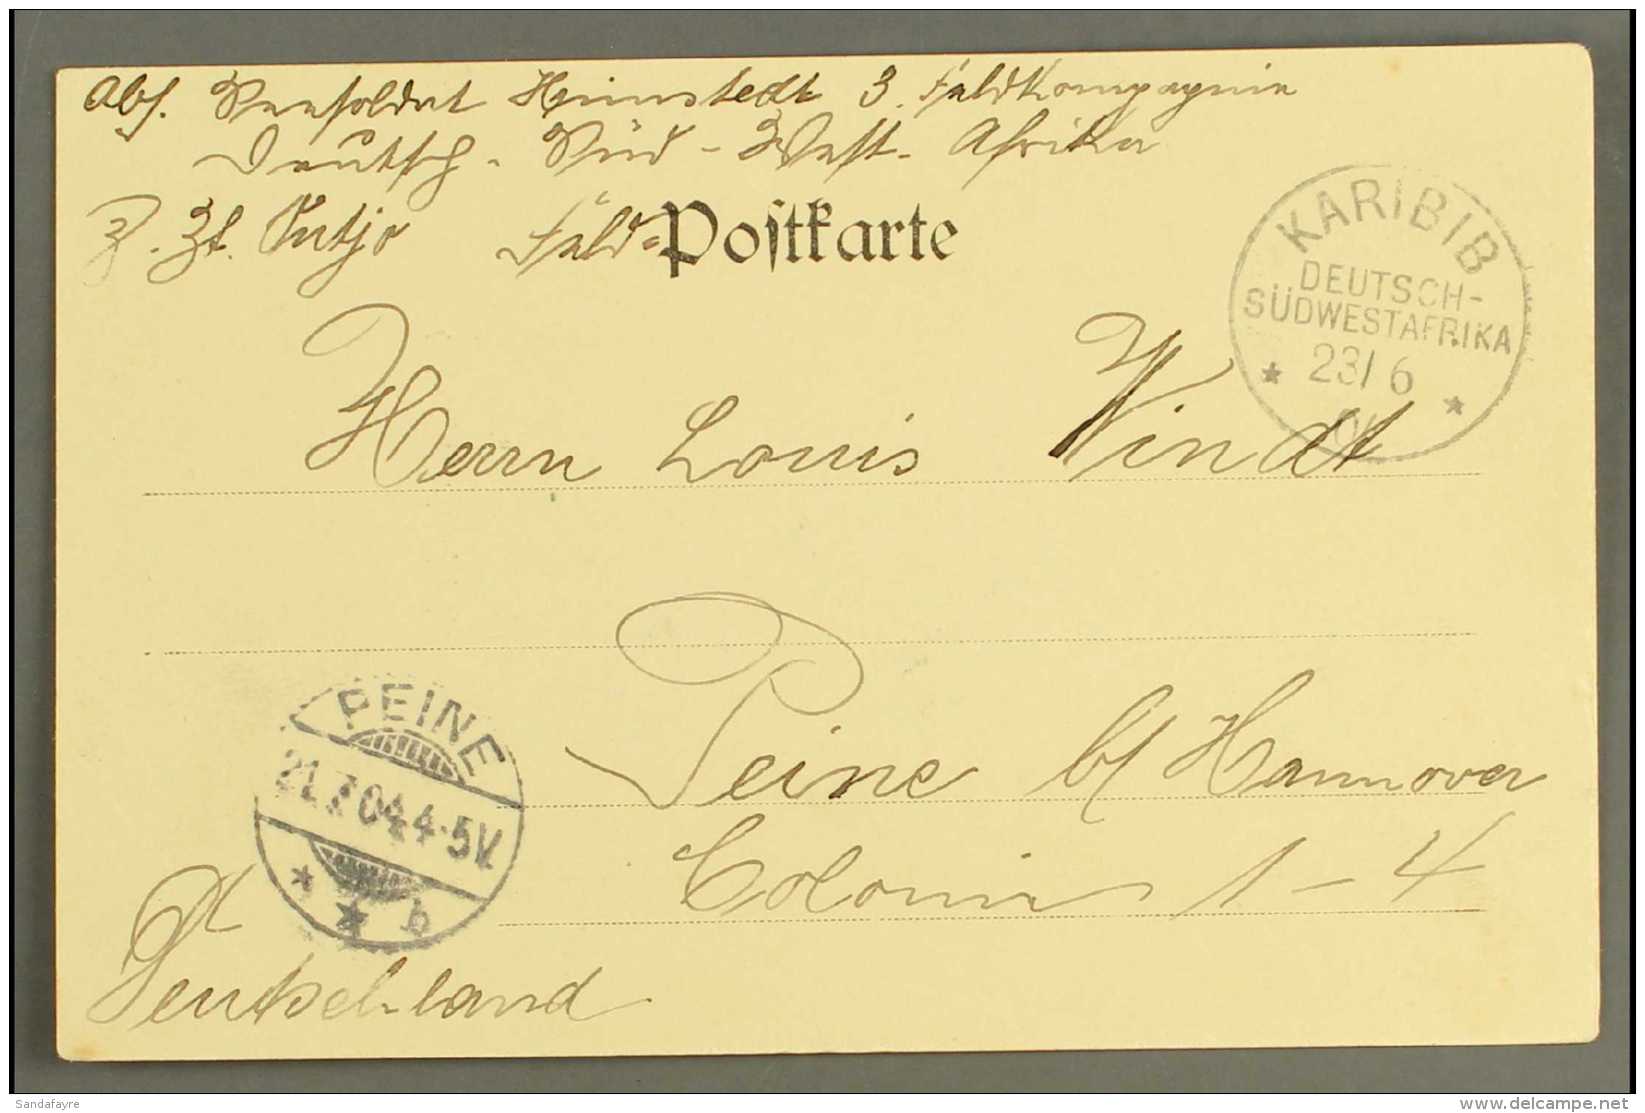 Abs. Heimstedt 3. Feldkompagnie
Deutsch-Süd-West-Afrika
z. Zt. Outjo Feld-Postkarte
KARIBIB
DEUTSCH-
SÜDWESTAFRIKA
23/6
Herrn Louis Windt
Peine b/ Hannover
PEINE
21.7.04.4-5V.
b
Colonie 1-4
Deutschland
Sandafayre
delcampe.net